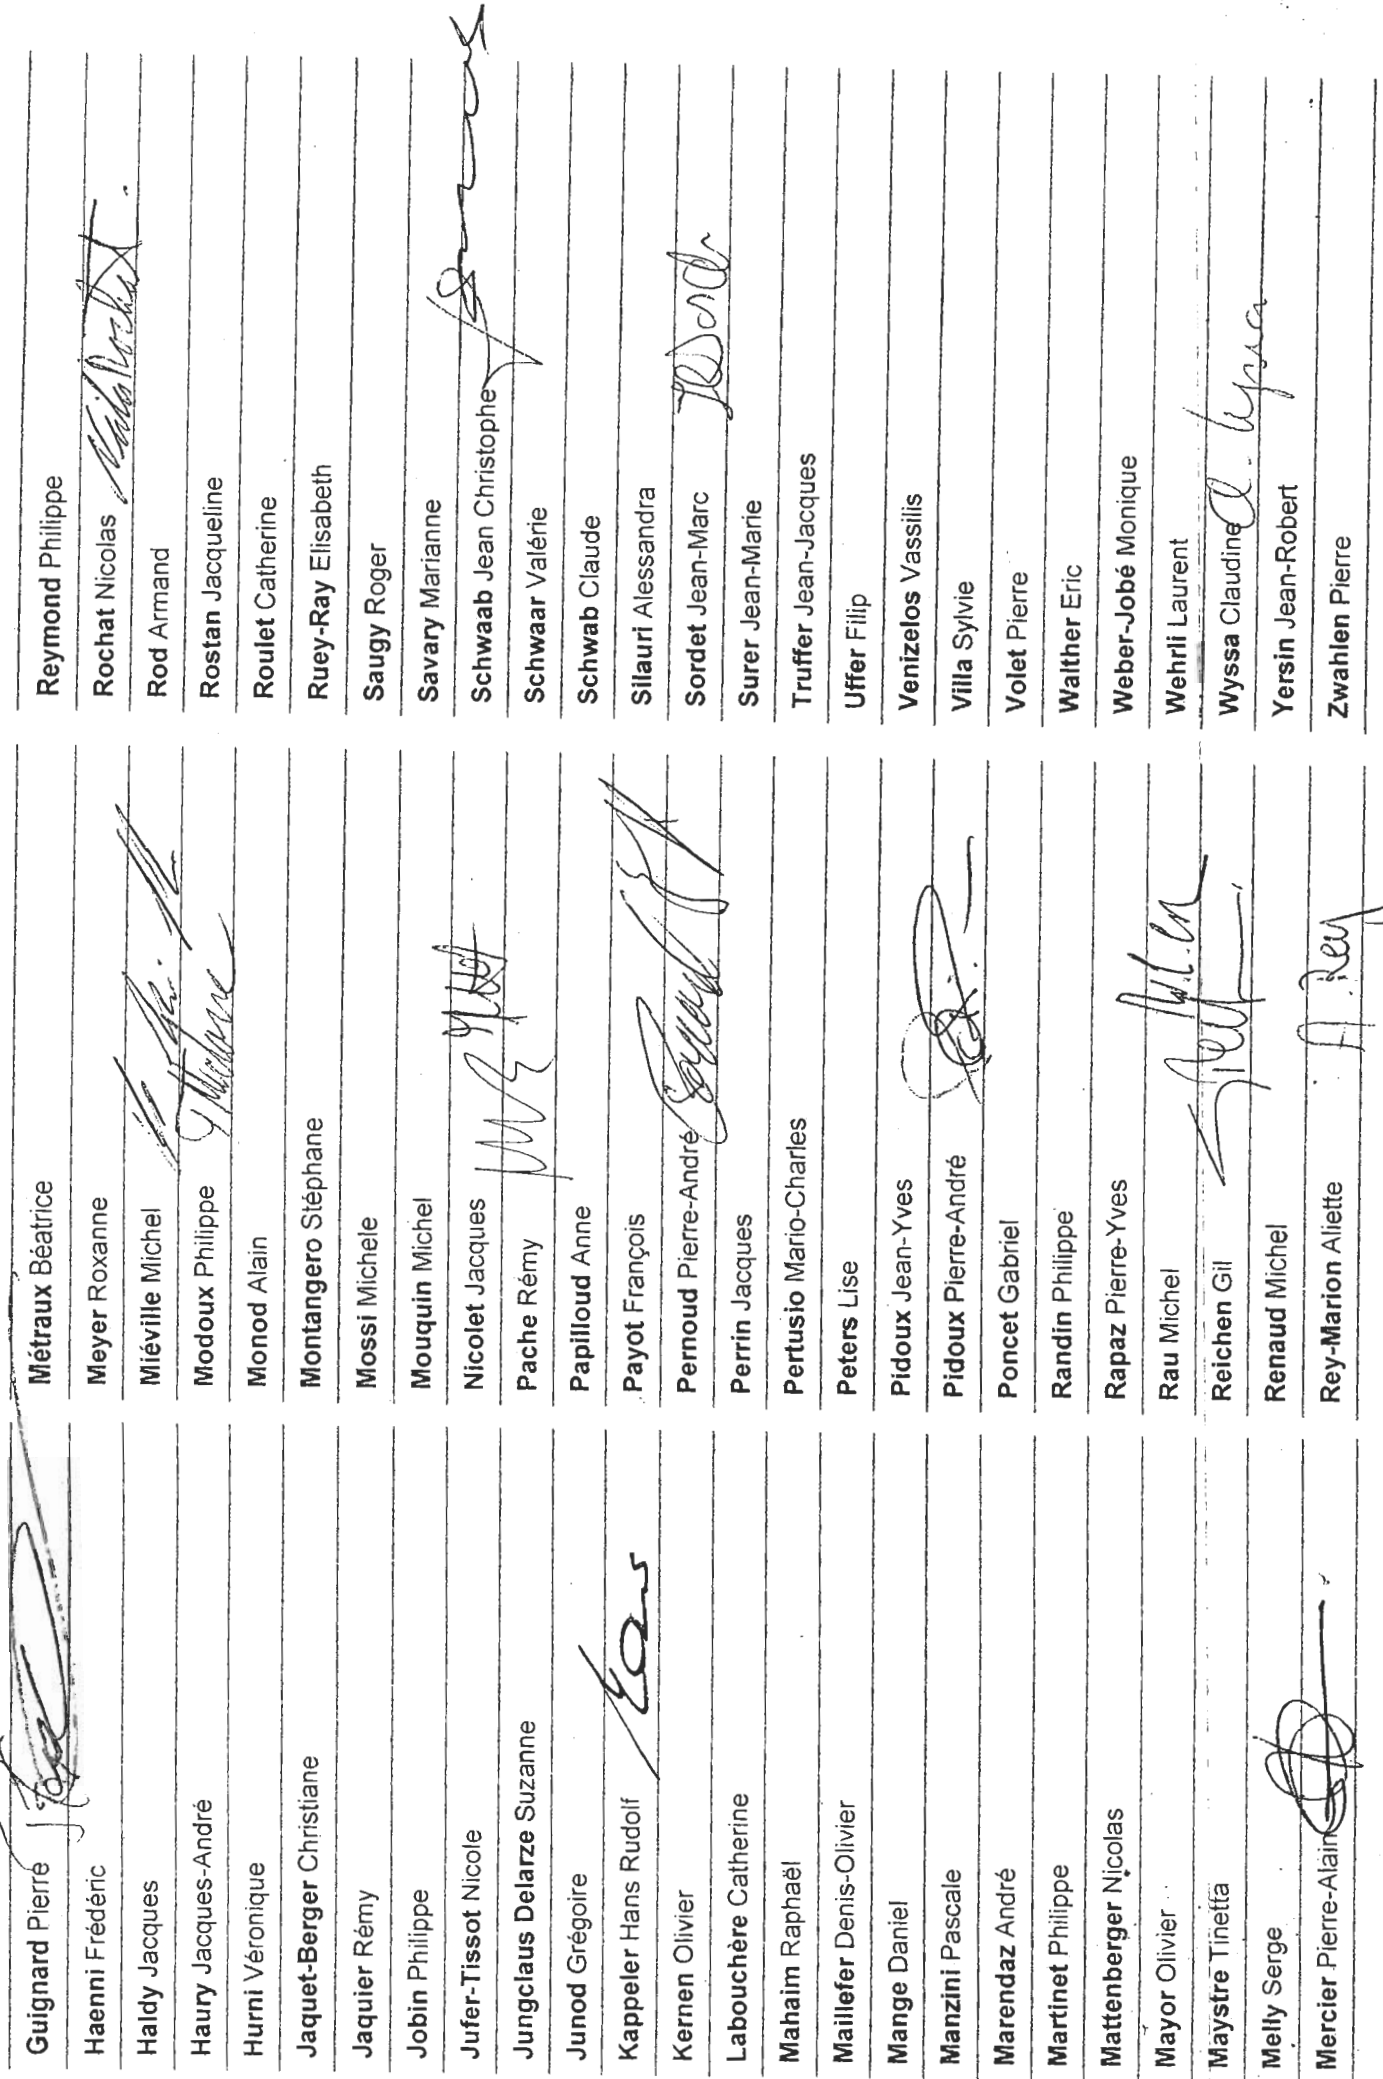 Guignard Pierre
Haenni Frédéric
Haldy Jacques
Haury Jacques-André
Hurni Véronique
Jaquet-Berger Christiane
Jaquier Rémy
Jobin Philippe
Jufer-Tissot Nicole
Jungclaus Delarze Suzanne
Junod Grégoire
Kappeler Hans Rudolf
Kernen Olivier
Labouchère Catherine
Mahaim Raphaël
Maillefer Denis-Olivier
Mange Daniel
Manzini Pascale
Marendaz André
Martinet Philippe
Mattenberger Nicolas
Mayor Olivier
Maystre Tinetta
Melly Serge
Mercier Pierre-Alain
Métraux Béatrice
Meyer Roxanne
Miéville Michel
Modoux Philippe
Monod Alain
Montangero Stéphane
Mossi Michele
Mouquin Michel
Nicolet Jacques
Pache Rémy
Papilloud Anne
Payot François
Pernoud Pierre-André
Perrin Jacques
Pertusio Mario-Charles
Peters Lise
Pidoux Jean-Yves
Pidoux Pierre-André
Poncet Gabriel
Randin Philippe
Rapaz Pierre-Yves
Rau Michel
Reichen Gil
Renaud Michel
Rey-Marion Aliette A. Rey
Reymond Philippe
Rochat Nicolas
Rod Armand
Rostan Jacqueline
Roulet Catherine
Ruey-Ray Elisabeth
Saugy Roger
Savary Marianne
Schwaab Jean Christophe
Schwaar Valérie
Schwab Claude
Silauri Alessandra
Sordet Jean-Marc
Surer Jean-Marie
Truffer Jean-Jacques
Uffer Filip
Venizelos Vassilis
Villa Sylvie
Volet Pierre
Walther Eric
Weber-Jobé Monique
Wehrli Laurent
Wyssa Claudine
Yersin Jean-Robert
Zwahlen Pierre